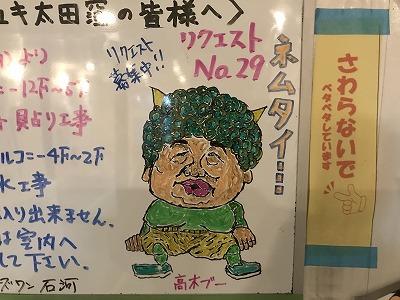 ユキ太田窪の皆様へ〉
より
リクエスト
募集中!!
リクエスト
No.29
ネムタイ…
ー12下〜5下
貼り工事
ルコニー4下〜2下
水工事
入り出来ません。
は室内へ
して下さい。
ズワン 石河
高木ブー
さわらないで
ベタベタしています